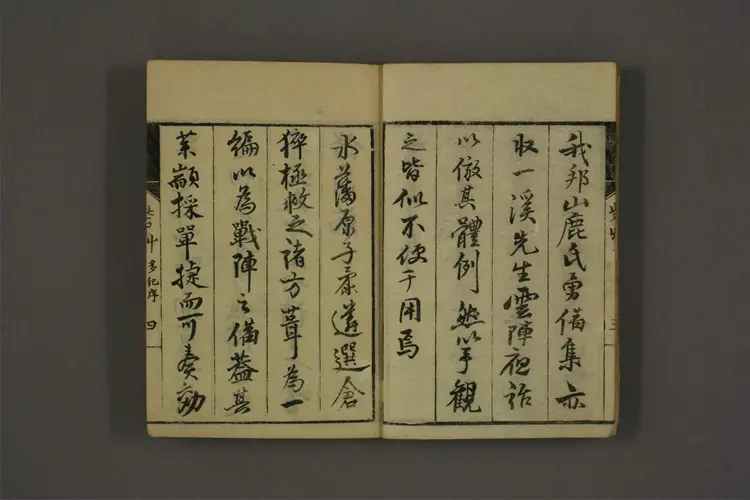 我邦山鹿氏勇備集亦
収一溪先生雲陣夜話
以倣其體例然以予觀
之皆似不便于用焉
水藩原子柔遴選倉
猝極救之諸方葺為一
編以為戰陣之備蓋其
菜顓採單捷而可奏効
序 四